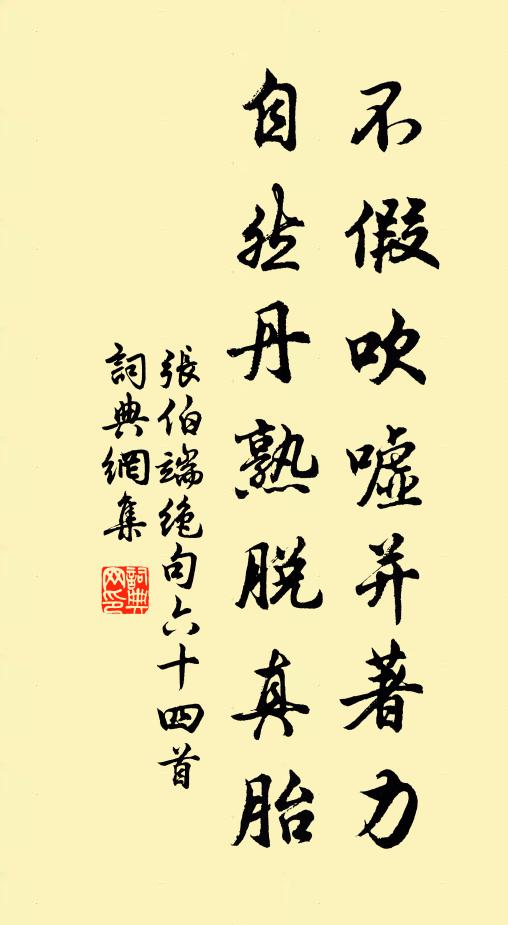 不假吹噓并著力
自然丹熟脱真胎
張伯端絶句六十四首
詞典網集
詞典
网印